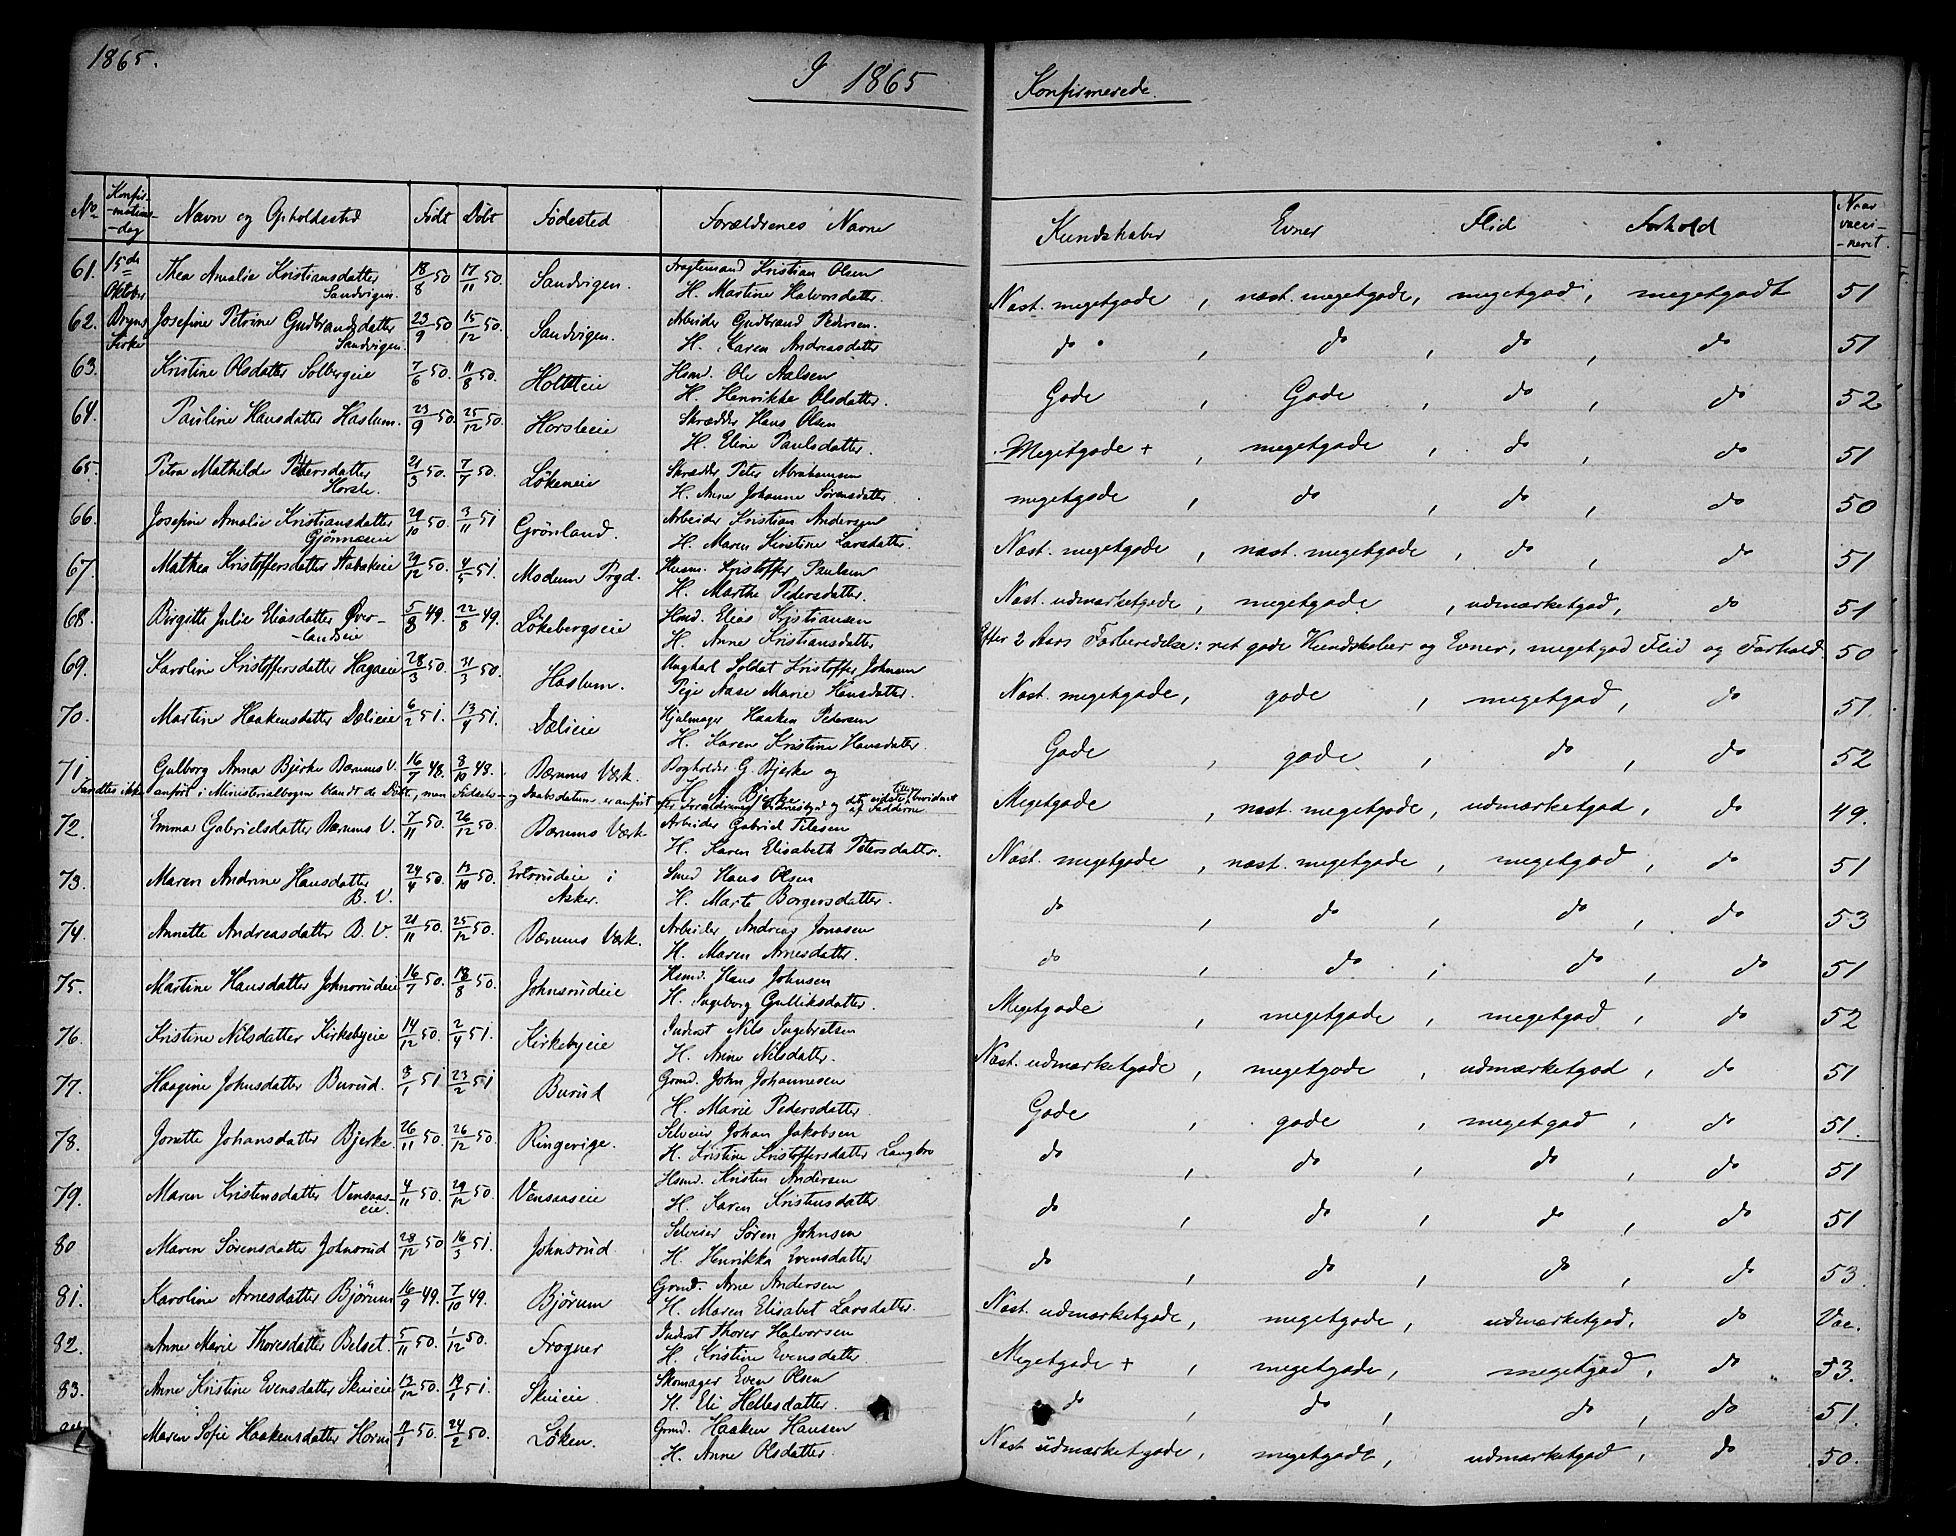 1865.
I 1865
Konfirmerede.
No
Konfir-
-mations-
-dag
Navn og Opholdssted
Født
Døbt
Fødested
Forældrenes Navne
Kundskaber
Evner
Flid
Forhold
Naar
vacci-
-neret.
61. 15de Thea Amalie Kristiansdatter 18/8 50 17/11 50. Sandvigen. Fragtemand Kristian Olsen
Oktober Sandvigen. H. Martine Halvorsdatter.
Næst. megetgode, næst. megetgode, megetgod, megetgodt 51
62. Bryns Josefine Petrine Gudbrandsdatter 23/9 50 15/12 50. Sandvigen. Arbeider Gudbrand Pedersen.
Kirke Sandvigen. H. Karen Andreasdatter
do , do , do , do 51
63. Kristine Olsdatter Solbergeie 7/6 50. 11/8 50. Holtsteie Hsmd. Ole Aslsen
H. Henrikke Olsdatter.
Gode , Gode , do , do 52
64. Pauline Hansdatter Haslum. 23/9 50. 25/12 50. Horsleeie Skrædder Hans Olsen
H. Eline Paulsdatter.
Megetgode + , megetgode , do , do 51
65. Petra Mathilde Petersdatter 21/3 50. 7/7 50. Løkeneie Skrædder Peter Abrahamsen
Horsle. H. Anne Johanne Sørensdatter.
megetgode , do , do , do 50
66. Josefine Amalie Kristiansdatter 29/10 50. 3/11 51 Grønland. Arbeider Kristian Andersen
Gjønnæseie H. Maren Kirstine Larsdatter.
Næst. megetgode , næst. megetgode , do , do 51
67. Mathea Kristoffersdatter Stabækeie 29/12 50. 4/5 51. Modum Prgd. Husm. Kristoffer Paulsen
H. Marthe Pedersdatter.
Næst. udmærketgode , megetgode , udmærketgod, do 51
68. Birgitte Julie Eliasdatter Øver- 5/8 49. 22/8 49. Løkebergseie Hsmd. Elias Kristiansen
-landeie H. Anne Kristiansdatter
Efter 2 Aars Forberedelse: ret gode Kundskaber og Evner, megetgod Flid og Forhold. 50
69. Karoline Kristoffersdatter Hagaeie 28/3 50. 31/3 50. Haslum. Ungkarl Soldat Kristoffer Johnsen
Pige Aase Marie Hansdatter.
Næst. megetgode, gode , megetgod, do 51.
70. Martine Haakensdatter Dælieie 6/2 51. 13/4 51. Dælieie Hjulmager Haaken Pedersen
H. Karen Kristine Hansdatter.
Gode , gode , do , do 52
71. Gulborg Anna Bjerke Bærums V. 16/7 48. 8/10 48. Bærums Værk. Bogholder G. Bjerke og
H. A. Bjerke
Fandtes ikke anført i Ministerialbogen blandt de Døbte, men Fødsels- og Daabsdatum er anført
Megetgode , næst. megetgode, udmærketgod, do 49.
72. Emma Gabrielsdatter Bærums V. 7/11 50. 26/12 50. Bærums Værk Arbeider Gabriel Tilesen
H. Karen Elisabeth Petersdatter.
Næst. megetgode , næst. megetgode, megetgod , do 51
73. Maren Andrine Hansdatter 24/4 50. 13/10 50. i Smed Hans Olsen
B. V. Asker. H. Marte Borgersdatter.
do , do , do , do 53
74. Annette Andreasdatter B. V. 21/11 50. 25/12 50. Bærums Værk. Arbeider Andreas Jonasen
H. Maren Arnesdatter.
do , do , do , do 51
75. Martine Hansdatter Johnsrudeie 16/7 50. 18/8 50. Johnsrudeie Hsmd. Hans Johnsen
H. Ingeborg Gulliksdatter.
Megetgode , megetgode , megetgod , do 52
76. Kristine Nilsdatter Kirkebyeie 14/12 50. 2/4 51. Kirkebyeie Inderst Nils Ingebretsen
H. Anne Nilsdatter.
Næst. udmærketgode, megetgode , udmærketgod , do 51
77. Haagine Johnsdatter Burud. 3/1 51 23/2 51 Burud Grmd. John Johannesen
H. Marie Pedersdatter.
Gode , gode , megetgod , do 51.
78. Jonette Johansdatter Bjerke 26/11 50. 26/12 50. Ringerige. Selveier Johan Jakobsen
H. Kristine Kristoffersdatter Langbro
do , do , do , do 51
79. Maren Kristensdatter Vensaas- 4/11 50. 29/12 50. Vensaaseie Hsmd. Kristen Andersen
eie. H. Karen Kristensdatter
do , do , do , do 51
80 Maren Sørensdatter Johnsrud 28/12 50 16/3 51. Johnsrud Selveier Søren Johnsen
H. Henrikka Evensdatter
do , do , do , do 53.
81. Karoline Arnesdatter Bjørum 16/9 49. 7/10 49. Bjørum Grmd. Arne Andersen
H. Maren Elisabet Larsdatter.
Næst. udmærketgode, megetgode , udmærketgod, do Vac.
82. Anne Marie Thoresdatter Belset. 5/11 50. 1/12 50. Frogner Inderst Thorer Halvorsen
H. Kristine Evensdatter
Megetgode + , megetgode, megetgod, do 53.
83. Anne Kristine Evensdatter Skuieie 13/12 50. 19/1 51. Skuieie Skomager Even Olsen
H. Eli Hellesdatter.
do , do , do , do 51.
Maren Sofie Haakensdatter Horni 11/1 50. 24/2 50. Løken. Grmd. Haaken Hansen
H. Anne Olsdatter.
Næst udmærketgode, megetgode, udmærketgod , do 50.